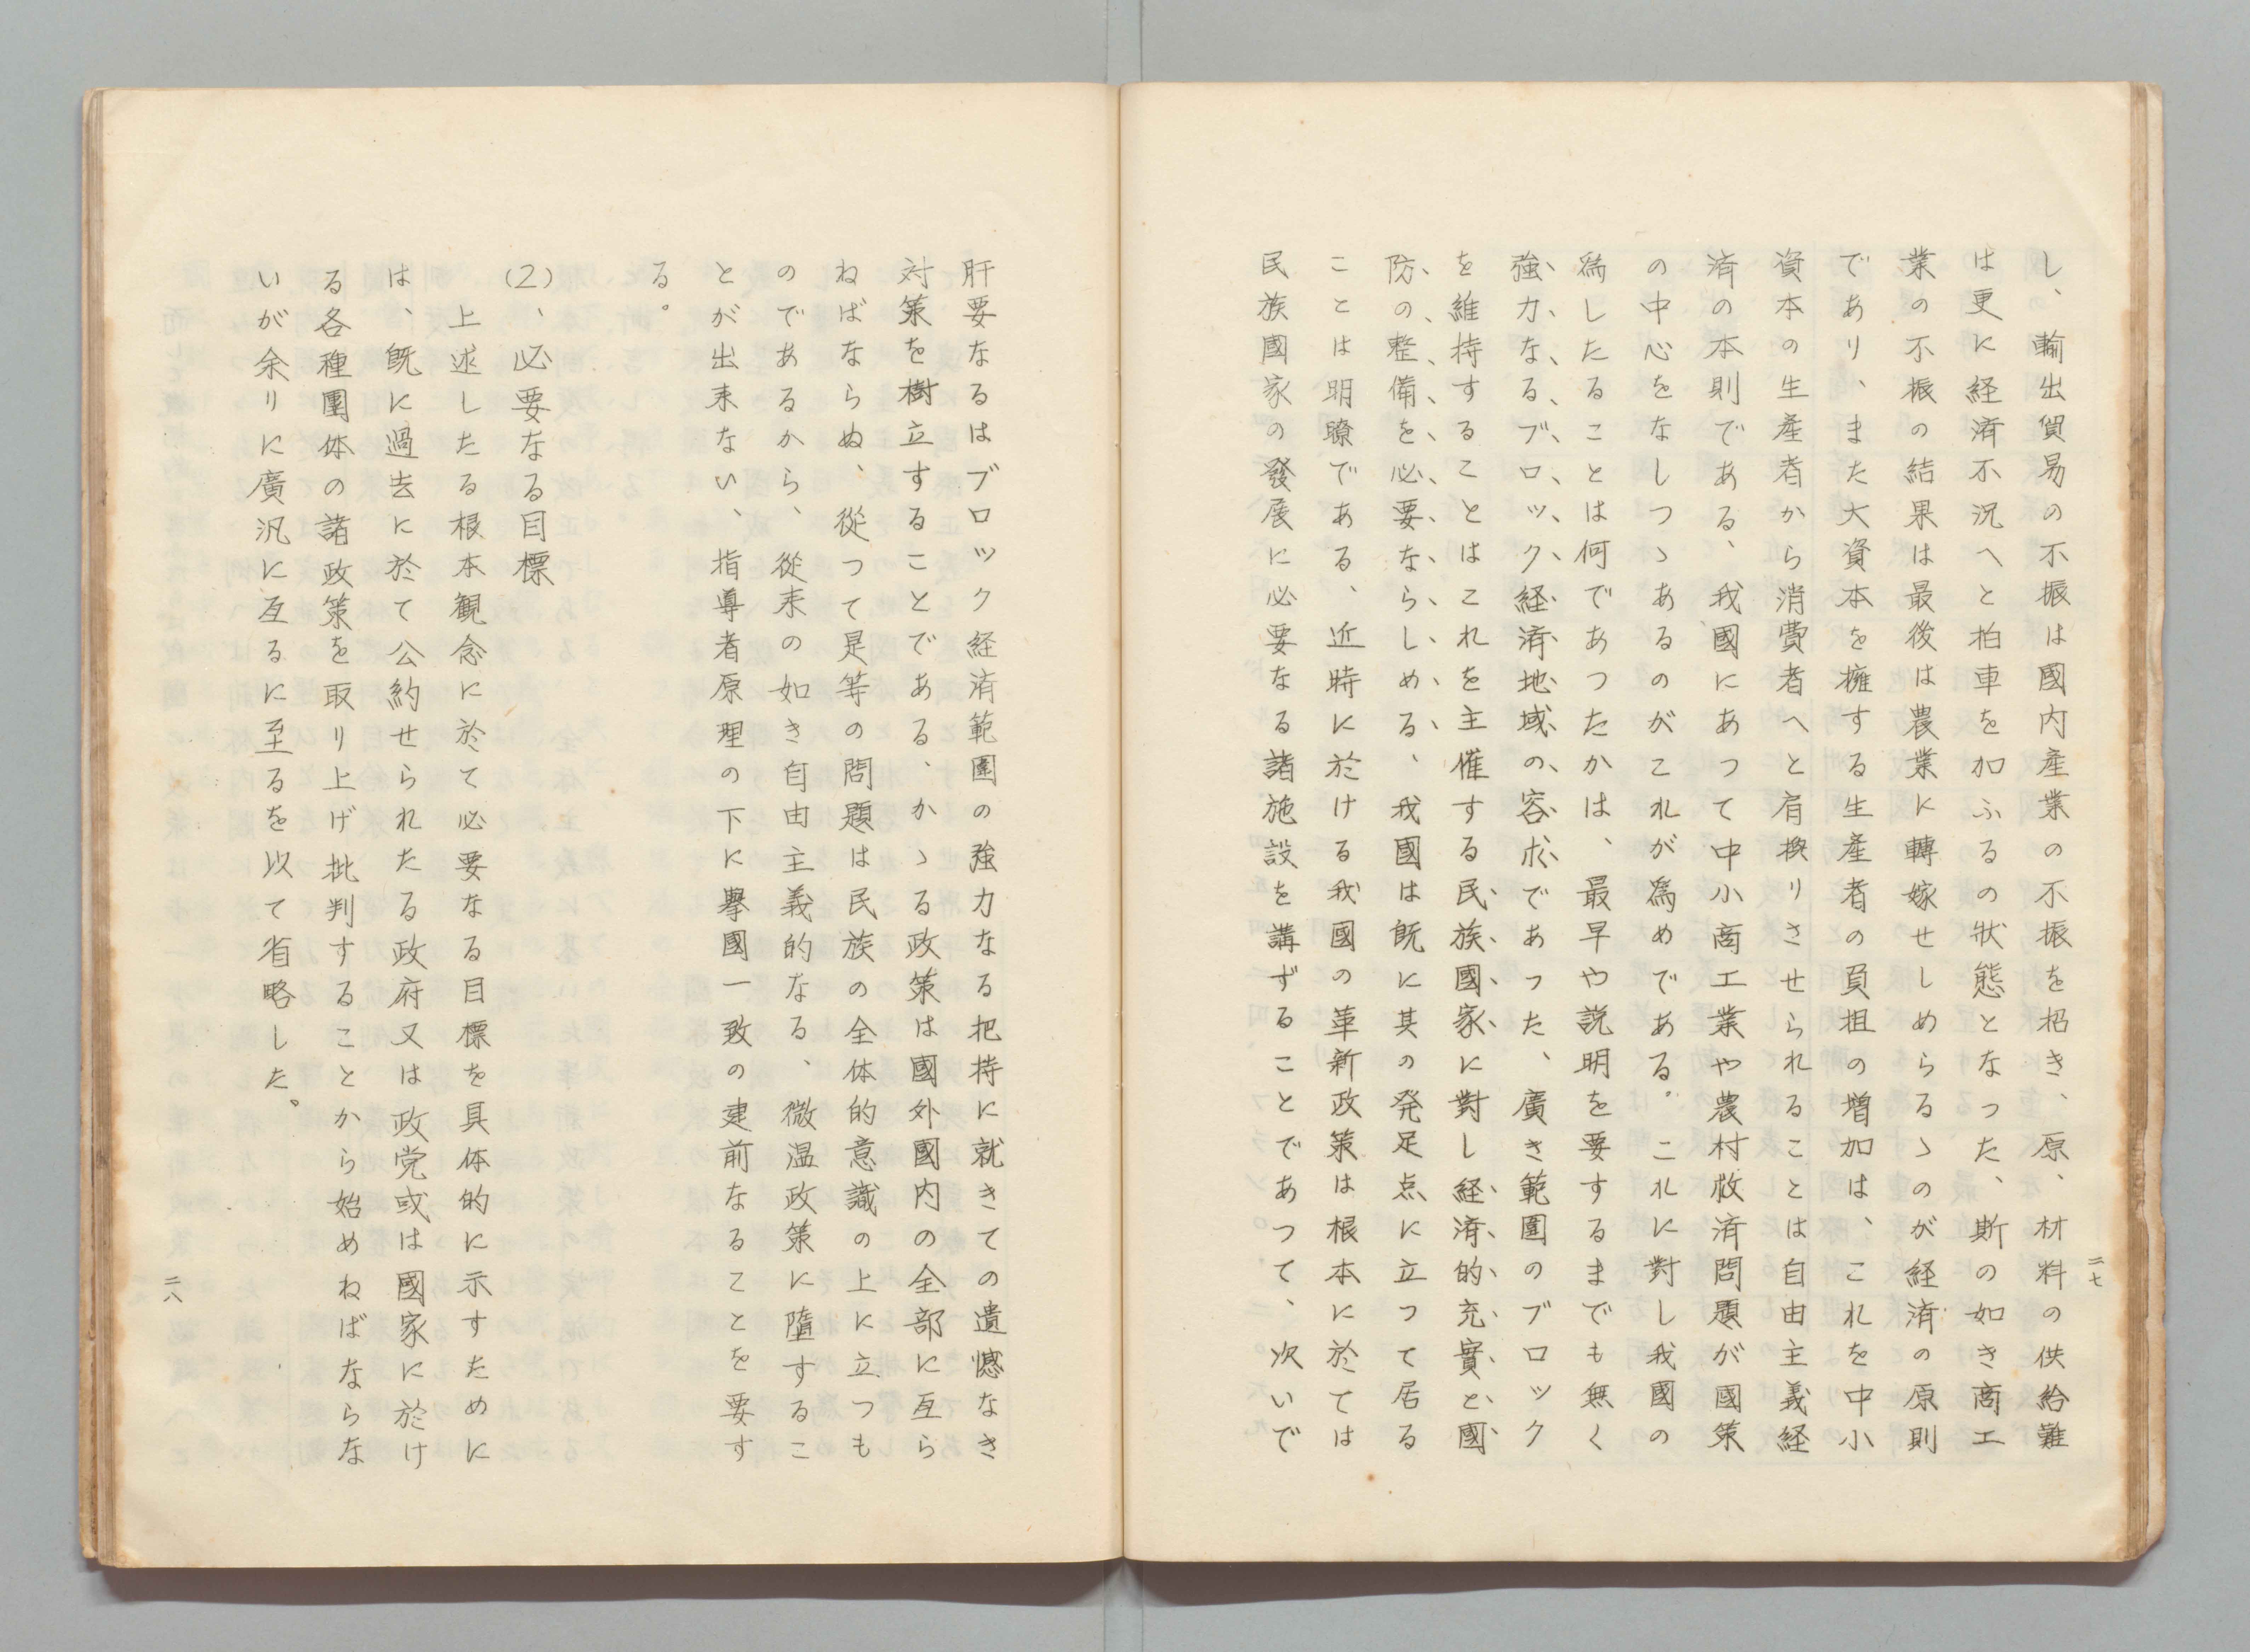 二七
し、輸出貿易の不振は國内産業の不振を招き、原、材料の供給難
は更に経済不況へと拍車を加ふるの狀態となった、斯の如き商工
業の不振の結果は最後は農業に轉嫁せしめらるゝのが経済の原則
であり、また大資本を擁する生産者の負担の増加は、これを中小
資本の生産者から消費者へと肩換りさせられることは自由主義経
済の本則である、我國にあって中小商工業や農村救済問題が國策
の中心をなしつゝあるのがこれが為めである。これに對し我國の
為したることは何であつたかは、最早や説明を要するまでも無く
強力なるブロック経済地域の容求であった、廣き範圍のブロック
を維持することはこれを主催する民族國家に對し経済的充實と國
防の整備を必要ならしめる、我國は既に其の発足点に立つて居る
ことは明瞭である、近時に於ける我國の革新政策は根本に於ては
民族國家の發展に必要なる諸施設を講ずることであつて、次いで
肝要なるはブロック経済範圍の強力なる把持に就きての遺憾なき
対策を樹立することである、かゝる政策は國外國内の全部に亙ら
ねばならぬ、從つて是等の問題は民族の全体的意識の上に立つも
のであるから、從来の如き自由主義的なる、微温政策に墮するこ
とが出来ない、指導者原理の下に擧國一致の建前なることを要す
る。
(2)、必要なる目標
上述したる根本観念に於て必要なる目標を具体的に示すために
は、既に過去に於て公約せられたる政府又は政党或は國家に於け
る各種團体の諸政策を取り上げ批判することから始めねばならな
いが余りに廣汎に亙るに至るを以て省略した。
二八